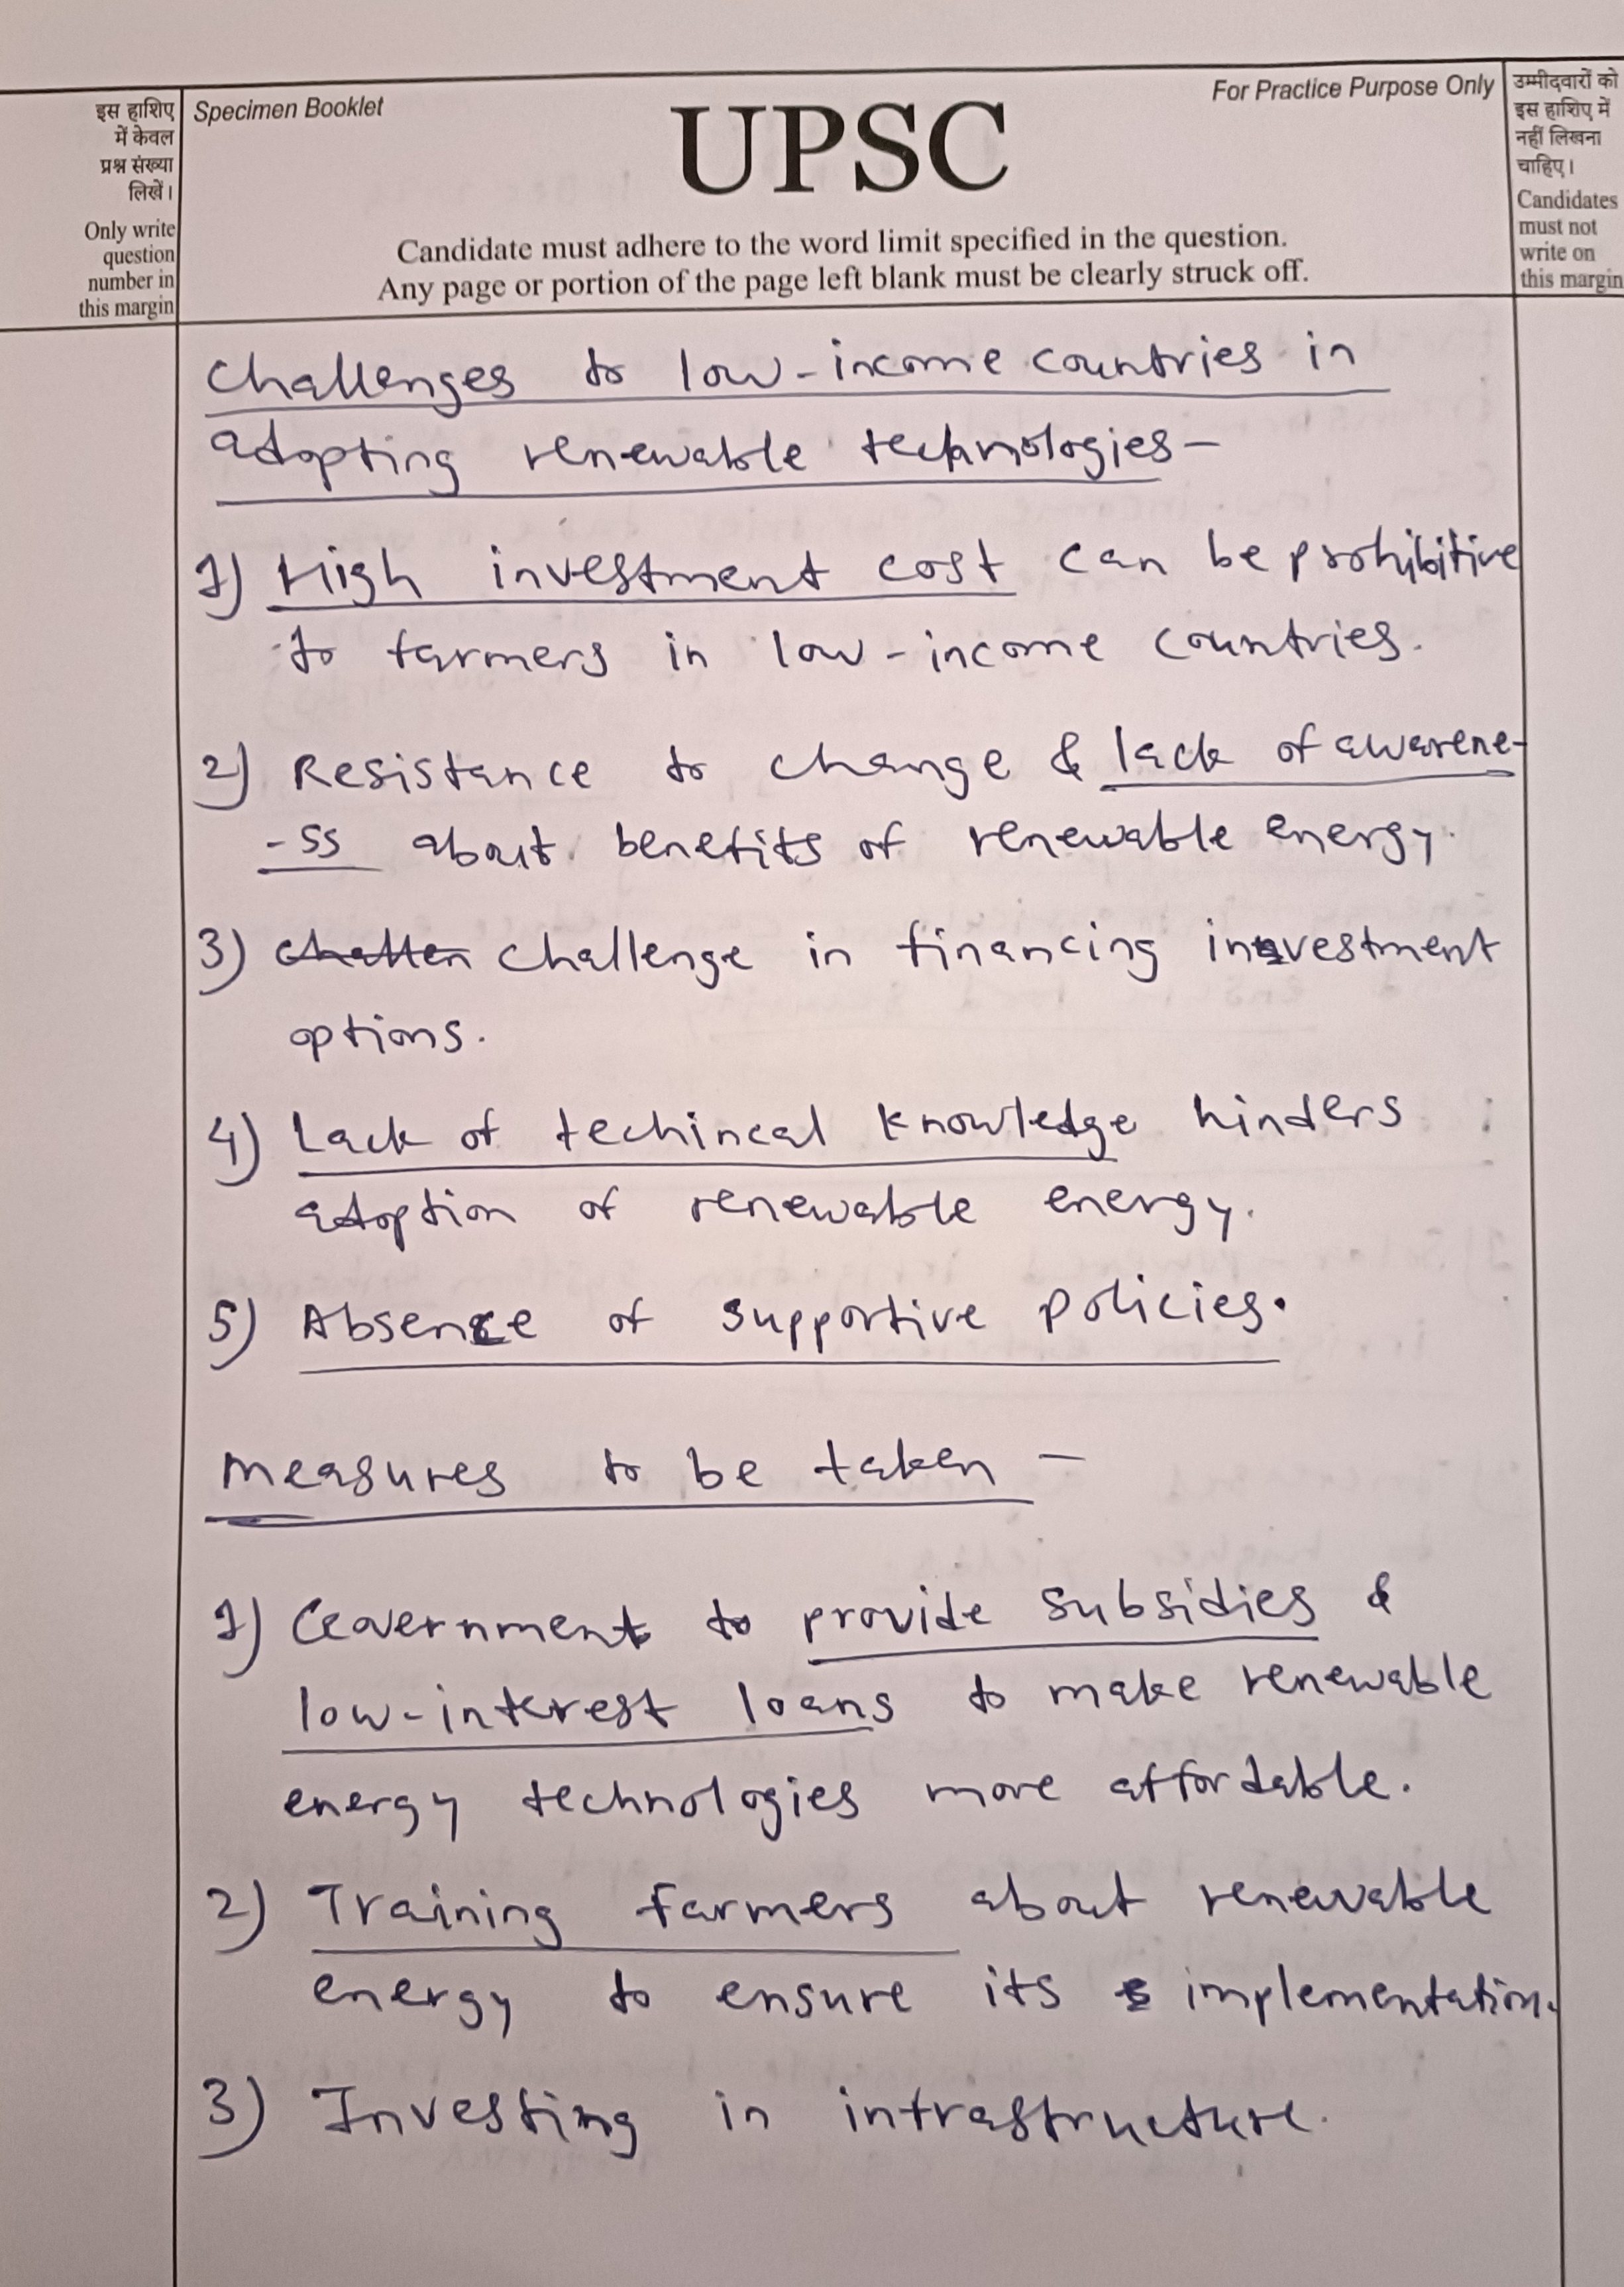 इस हाशिए
में केवल
प्रश्न संख्या
लिखें।
Only write
question
number in
this margin
Specimen Booklet
UPSC
For Practice Purpose Only
Candidate must adhere to the word limit specified in the question.
Any page or portion of the page left blank must be clearly struck off.
उम्मीदवारों को
इस हाशिए में
नहीं लिखना
चाहिए।
Candidates
must not
write on
this margin
Challenges to low-income countries in
adopting renewable technologies-
1) High investment cost can be prohibitive
to farmers in low-income countries.
2) Resistance to change & lack of awarene-
-ss about benefits of renewable energy.
3) challenge in financing investment
options.
4) Lack of techincal knowledge hinders
adoption of renewable energy.
5) Absence of supportive policies.
Measures to be taken -
1) Government to provide subsidies &
low-interest loans to make renewable
energy technologies more affordable.
2) Training farmers about renewable
energy to ensure its implementation.
3) Investing in infrastructure.